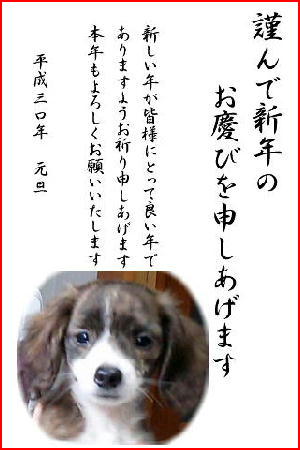 謹んで新年の
お慶びを申しあげます
新しい年が皆様にとって良い年で
ありますようお祈り申しあげます
本年もよろしくお願いいたします
平成三〇年　元旦